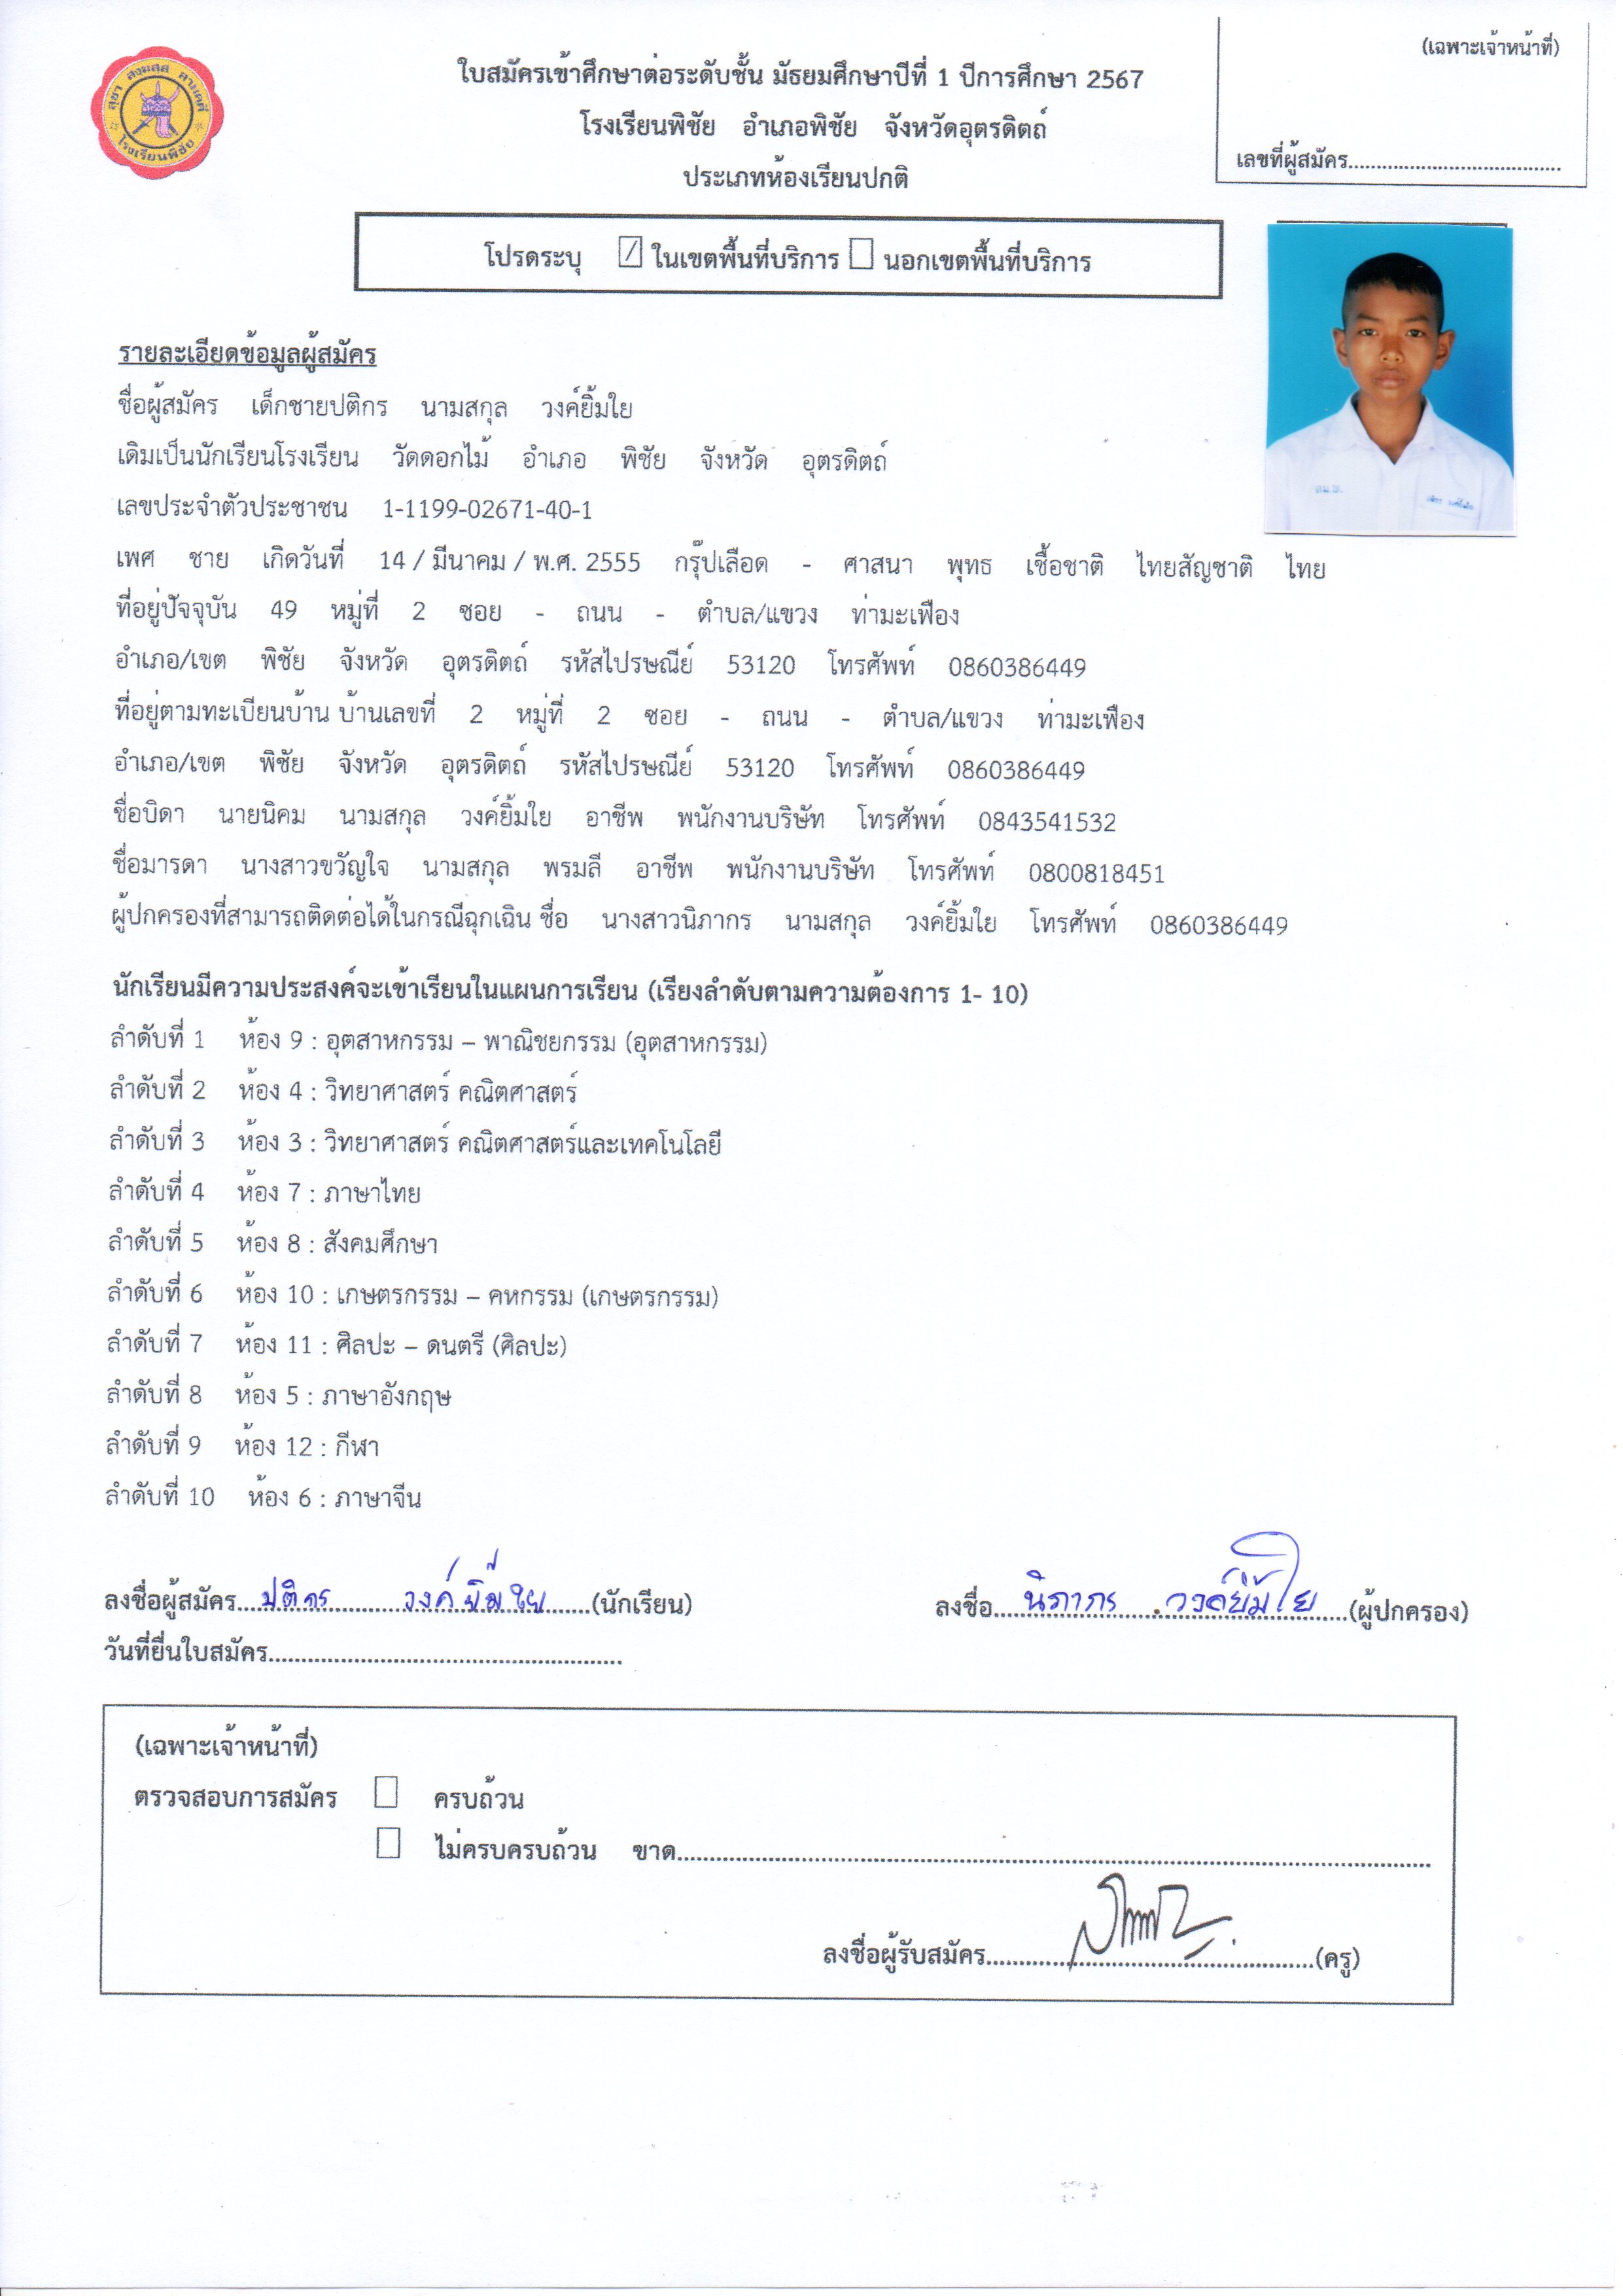 (เฉพาะเจ้าหน้าที่)
ใบสมัครเข้าศึกษาต่อระดับชั้น มัธยมศึกษาปีที่ 1 ปีการศึกษา 2567
โรงเรียนพิชัย อำเภอพิชัย จังหวัดอุตรดิตถ์
เลขที่ผู้สมัคร......................................
ประเภทห้องเรียนปกติ
โรงเรียนพิชัย
โปรดระบุ ☑ ในเขตพื้นที่บริการ ☐ นอกเขตพื้นที่บริการ
รายละเอียดข้อมูลผู้สมัคร
ชื่อผู้สมัคร เด็กชายปติกร นามสกุล วงค์ยิ้มใย
เดิมเป็นนักเรียนโรงเรียน วัดดอกไม้ อำเภอ พิชัย จังหวัด อุตรดิตถ์
เลขประจำตัวประชาชน 1-1199-02671-40-1
เพศ ชาย เกิดวันที่ 14 / มีนาคม / พ.ศ. 2555 กรุ๊ปเลือด - ศาสนา พุทธ เชื้อชาติ ไทยสัญชาติ ไทย
ที่อยู่ปัจจุบัน 49 หมู่ที่ 2 ซอย - ถนน - ตำบล/แขวง ท่ามะเฟือง
อำเภอ/เขต พิชัย จังหวัด อุตรดิตถ์ รหัสไปรษณีย์ 53120 โทรศัพท์ 0860386449
ที่อยู่ตามทะเบียนบ้าน บ้านเลขที่ 2 หมู่ที่ 2 ซอย - ถนน - ตำบล/แขวง ท่ามะเฟือง
อำเภอ/เขต พิชัย จังหวัด อุตรดิตถ์ รหัสไปรษณีย์ 53120 โทรศัพท์ 0860386449
ชื่อบิดา นายนิคม นามสกุล วงค์ยิ้มใย อาชีพ พนักงานบริษัท โทรศัพท์ 0843541532
ชื่อมารดา นางสาวขวัญใจ นามสกุล พรมลี อาชีพ พนักงานบริษัท โทรศัพท์ 0800818451
ผู้ปกครองที่สามารถติดต่อได้ในกรณีฉุกเฉิน ชื่อ นางสาวนิภากร นามสกุล วงค์ยิ้มใย โทรศัพท์ 0860386449
นักเรียนมีความประสงค์จะเข้าเรียนในแผนการเรียน (เรียงลำดับตามความต้องการ 1- 10)
ลำดับที่ 1 ห้อง 9 : อุตสาหกรรม – พาณิชยกรรม (อุตสาหกรรม)
ลำดับที่ 2 ห้อง 4 : วิทยาศาสตร์ คณิตศาสตร์
ลำดับที่ 3 ห้อง 3 : วิทยาศาสตร์ คณิตศาสตร์และเทคโนโลยี
ลำดับที่ 4 ห้อง 7 : ภาษาไทย
ลำดับที่ 5 ห้อง 8 : สังคมศึกษา
ลำดับที่ 6 ห้อง 10 : เกษตรกรรม – คหกรรม (เกษตรกรรม)
ลำดับที่ 7 ห้อง 11 : ศิลปะ – ดนตรี (ศิลปะ)
ลำดับที่ 8 ห้อง 5 : ภาษาอังกฤษ
ลำดับที่ 9 ห้อง 12 : กีฬา
ลำดับที่ 10 ห้อง 6 : ภาษาจีน
ลงชื่อผู้สมัคร....ปติกร วงค์ยิ้มใย....(นักเรียน) ลงชื่อ....นิภากร วงค์ยิ้มใย....(ผู้ปกครอง)
วันที่ยื่นใบสมัคร......................................................
(เฉพาะเจ้าหน้าที่)
ตรวจสอบการสมัคร ☐ ครบถ้วน
☐ ไม่ครบครบถ้วน ขาด..............................................................................
ลงชื่อผู้รับสมัคร..................................................(ครู)